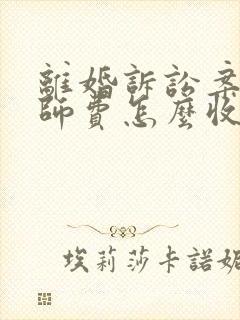 離婚訴訟案
師費怎麼收
埃莉莎卡諾妮